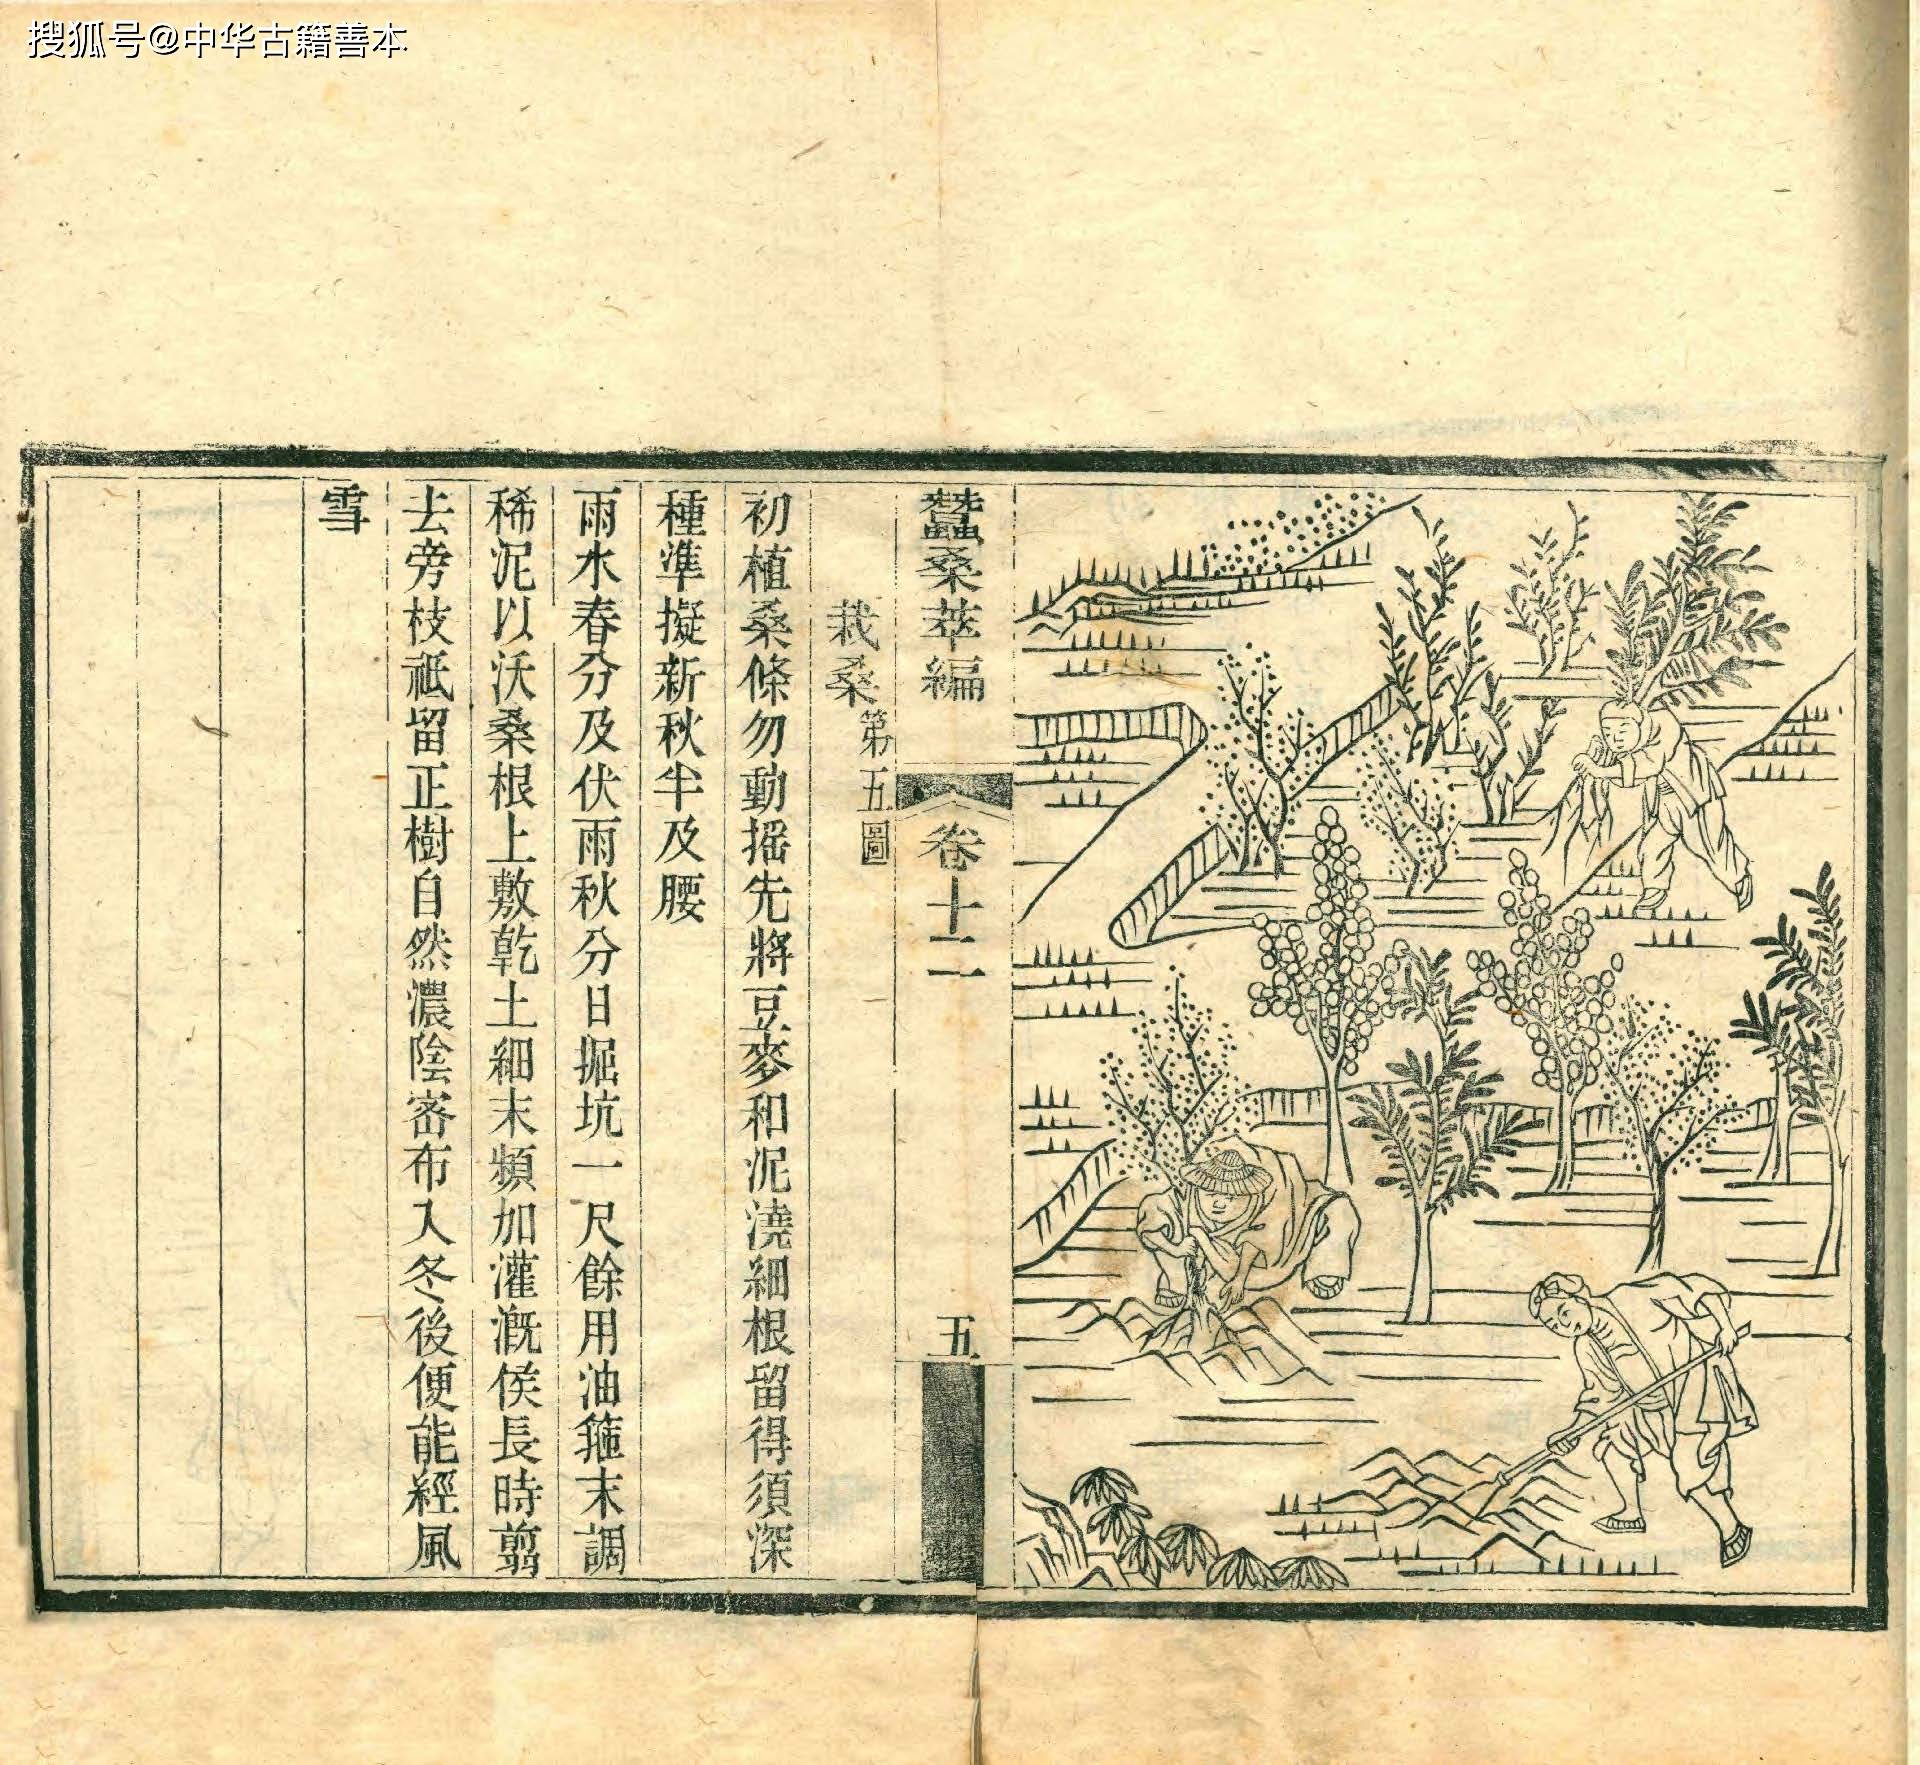 搜狐号@中华古籍善本
蠶桑萃編
卷十二
五
栽桑第五圖
初植桑條勿動搖先將豆麥和泥澆細根留得須深
種準擬新秋半及腰
雨水春分及伏雨秋分日掘坑一尺餘用油箍末調
稀泥以沃桑根上敷乾土細末頻加灌漑俟長時剪
去旁枝祗留正樹自然濃陰密布入冬後便能經風
雪